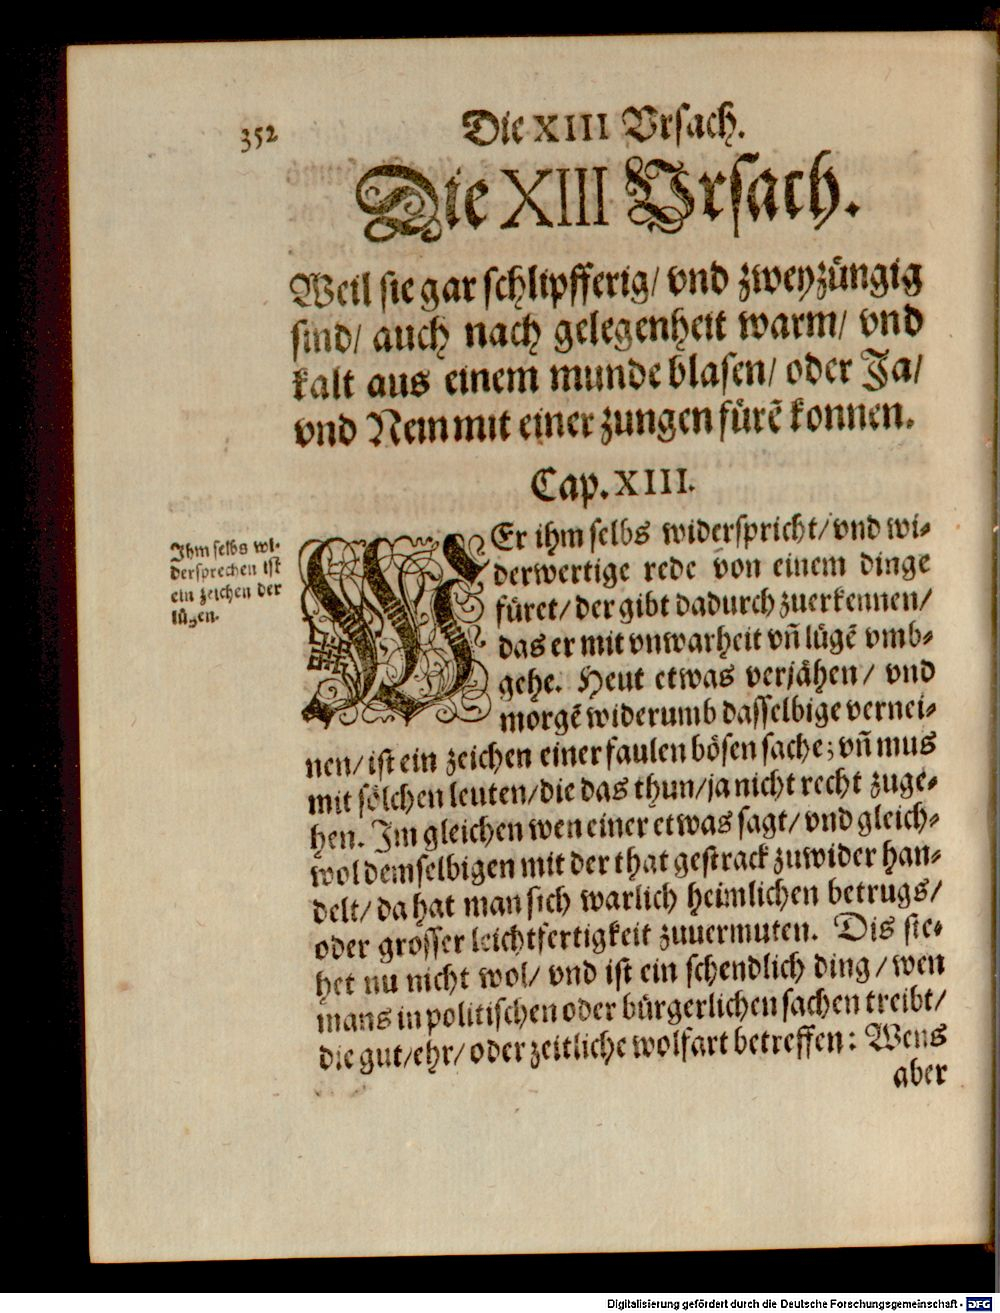 352
Die XIII Vrsach.
Die XIII Vrsach.
Weil sie gar schlipfferig/ vnd zweyzüngig
sind/ auch nach gelegenheit warm/ vnd
kalt aus einem munde blasen/ oder Ja/
vnd Nein mit einer zungen fürẽ konnen.
Cap. XIII.
Ihm selbs wi-
dersprechen ist
ein zeichen der
lügen.
WEr ihm selbs widerspricht/ vnd wi-
derwertige rede von einem dinge
füret/ der gibt dadurch zuerkennen/
das er mit vnwarheit vñ lügẽ vmb-
gehe. Heut etwas verjähen/ vnd
morgẽ widerumb dasselbige vernei-
nen/ ist ein zeichen einer faulen bösen sache; vñ mus
mit sölchen leuten/ die das thun/ ja nicht recht zuge-
hen. Im gleichen wen einer etwas sagt/ vnd gleich-
wol demselbigen mit der that gestrack zuwider han-
delt/ da hat man sich warlich heimlichen betrugs/
oder grosser leichtfertigkeit zuuermuten. Dis sie-
het nu nicht wol/ vnd ist ein schendlich ding/ wen
mans in politischen oder bürgerlichen sachen treibt/
die gut/ ehr/ oder zeitliche wolfart betreffen: Wens
aber
Digitalisierung gefördert durch die Deutsche Forschungsgemeinschaft - DFG